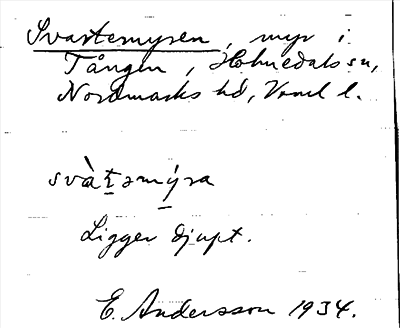 Svartemyren, myr i
Tången, Holmedals sn,
Nordmarks hd, Vrml l.
svàt̲əmý̲ra
Ligger djupt.
E. Andersson 1934.